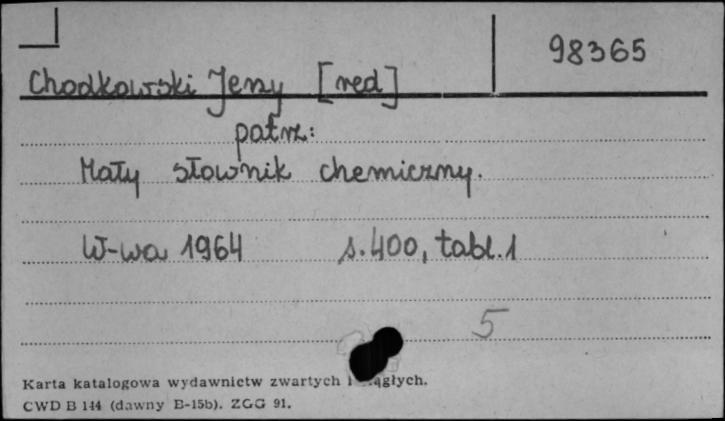 98365
Chodkowski Jerzy [red]
patrz:
Mały słownik chemiczny.
W-wa 1964 s. 400, tabl. 1
5
Karta katalogowa wydawnictw zwartych i
CWD B 144 (dawny B-15b). ZGG 91.